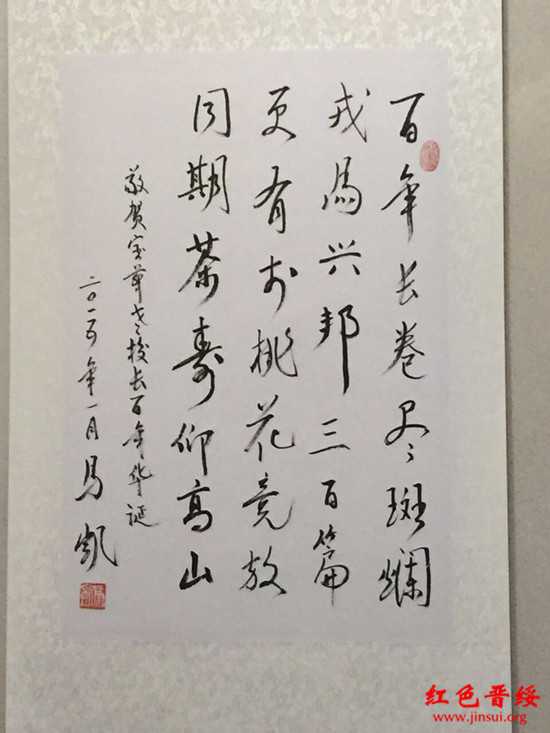 百年长卷尽斑斓
戎马兴邦三百篇
更有桃花竞放
同期茶寿仰高山
敬贺宝華老校长百年华诞
二〇一五年一月马凯
红色晋绥
www.jinsui.org